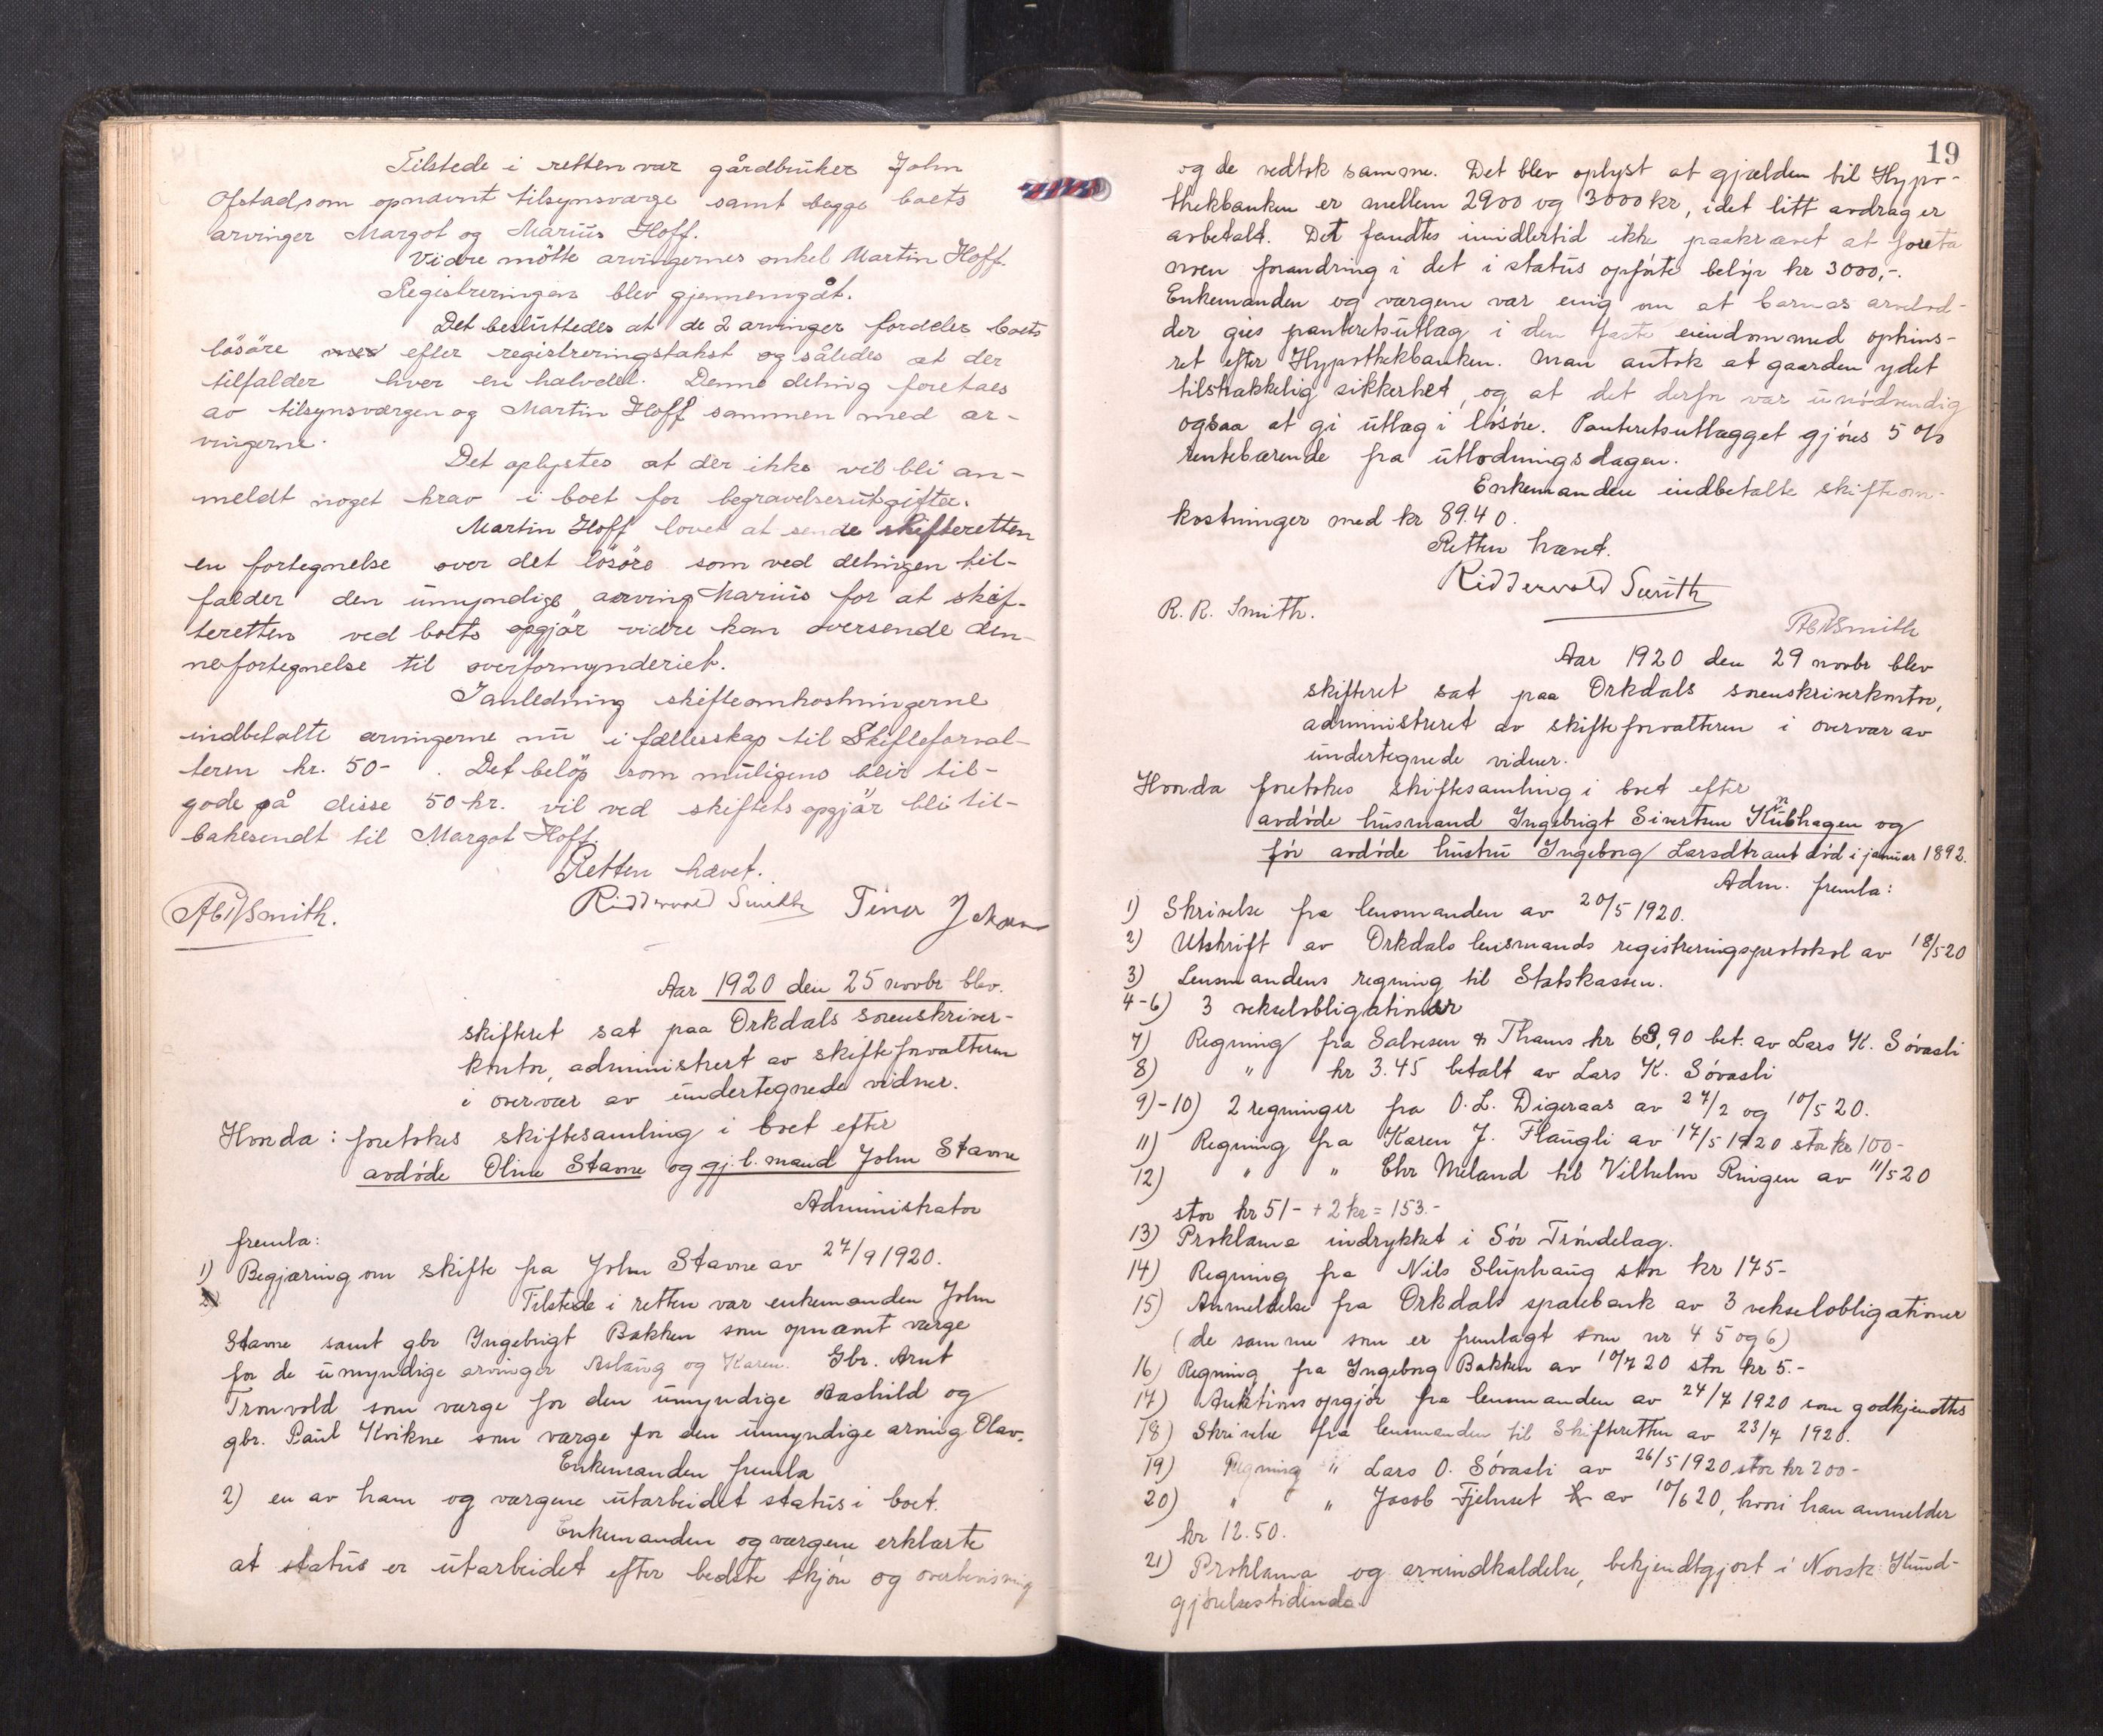 Tilstede i retten var gårdbruker John
Ofstad som opnævnt tilsynsværge samt begge boets
arvinger Margot og Marius Hoff.
Vidre mötte arvingernes onkel Martin Hoff.
Registreringen blev gjennemgåt.
Det besluttedes at de 2 arvinger fordeler boets
lösöre med efter registreringstakst og således at der
tilfalder hver en halvdel. Denne deling foretaes
av tilsynsværgen og Martin Hoff sammen med ar-
vingerne.
Det oplystes at der ikke vil bli an-
meldt noget krav i boet for begravelsesutgifter.
Martin Hoff lovet at sende skifteretten
en fortegnelse over det lösöre som ved delingen til-
falder den umyndige arving Marius for at skif-
teretten ved boets opgjör vidre kan oversende den-
ne fortegnelse til overformynderiet.
I anledning skifteomkostningerne
indbetalte arvingerne nu i fællesskap til Skifteforval-
teren kr. 50- . Det belöp som muligens blir til-
gode på disse 50 kr. vil ved skiftets opgjör bli til-
bakesendt til Margot Hoff.
Retten hævet.
Ridderwold Smith Tina
Smith.
Aar 1920 den 25 novbr blev
skifteret sat paa Orkdals sorenskriver-
kontor, administrert av skifteforvalteren
i overvær av undertegnede vidner.
Honda: foretokes skiftesamling i boet efter
avdøde Oline Stavne og gj. l. mand John Stavne
Administrator
fremla:
1) Begjæring om skifte fra John Stavne av 27/9 1920.
2) Tilstede i retten var enkemanden John
Stavne samt gbr Ingebrigt Bakken som opnævnt værge
for de umyndige arvinger Aslaug og Karen. Gbr. Arnt
Tronvold som værge for den umyndige Bashild og
gbr. Paul Kvikne som værge for den umyndige arving Olav.
Enkemanden fremla
2) en av ham og værgene utarbeidet status i boet.
Enkemanden og værgene erklærte
at status er utarbeidet efter bedste skjön og overbevisning
19
og de vedtok samme. Det blev oplyst at gjælden til Hypo-
thekbanken er mellem 2900 og 3000 kr, idet litt avdrag er
avbetalt. Det fandtes imidlertid ikke paakrævet at foreta
noen forandring i det i status opførte beløp kr 3000,-.
Enkemanden og værgene var enig om at barnas arvelod-
der gies panteretsutlæg i den faste eiendom med ophins-
ret efter Hypothekbanken. Man antok at gaarden ydet
tilstrækkelig sikkerhet, og at det derfor var unødvendig
ogsaa at gi utlæg i løsøre. Panteretsutlægget gjøres 5 %
rentebærende fra utlodningsdagen.
Enkemanden indbetalte skifteom-
kostninger med kr 89.40.
Retten hævet.
Ridderwold Smith
R. R. Smith.
Smith
Aar 1920 den 29 novbr blev
skifteret sat paa Orkdals sorenskriverkontor,
administreret av skifteforvalteren i overvær av
undertegnede vidner.
Honda foretokes skiftesamling i boet efter
avdøde husmand Ingebrigt Sivertsen Kubhagen og
før avdøde hustru Ingeborg Larsdtr død i januar 1892.
Adm. fremla:
1) Skrivelse fra lensmanden av 20/5 1920.
2) Utskrift av Orkdals lensmands registreringsprotokol av 18/5 20
3) Lensmandens regning til Statskassen.
4-6) 3 vekselobligationer
7) Regning fra Salvesen & Thams kr 63,90 bet. av Lars K. Sóvasli
8) " kr 3.45 betalt av Lars K. Sóvasli
9)-10) 2 regninger fra O. L. Digeraas av 27/2 og 10/5 20.
11) Regning fra Karen J. Flaugli av 17/5 1920 stor kr 100-
12) " " Chr Meland til Vilhelm Ringen av 11/5 20
stor kr 51- + 2 kr = 153.-
13) Proklama indrykket i Sør Trøndelag.
14) Regning fra Nils Sluphaug stor kr 175-
15) Anmeldelse fra Orkdals sparebank av 3 vekselobligationer
(de samme som er fremlagt som nr 4 5 og 6)
16) Regning fra Ingeborg Bakken av 10/7 20 stor kr 5.-
17) Auktions opgjør fra lensmanden av 24/7 1920 som godkjendtes
18) Skrivelse fra lensmanden til Skifteretten av 23/7 1920.
19) Regning " Lars O. Sóvasli av 26/5 1920 stor kr 200-
20) " " Jacob Fjelnset av 10/6 20, hvori han anmelder
kr 12.50.
21) Proklama og arveindkaldelse, bekjendtgjort i Norsk Kund-
gjørelsestidende.